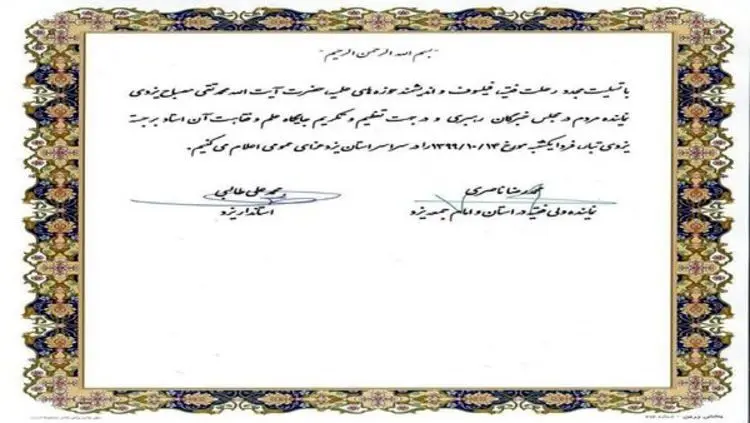 "بسم الله الرحمن الرحیم"
با تسلیت مجدد رحلت فقیه، فیلسوف و اندیشمند حوزه های علمیه حضرت آیت الله محمدتقی مصباح یزدی
نماینده مردم در مجلس خبرگان رهبری و در جهت تعظیم و تکریم جایگاه علم و فقاهت آن استاد برجسته
یزدی تبار، فردا یکشنبه مورخ ۱۳۹۹/۱۰/۱۴ را در سراسر استان یزد عزای عمومی اعلام می کنیم.
محمدرضا ناصری
نماینده ولی فقیه در استان و امام جمعه یزد
محمد علی طالبی
استاندار یزد